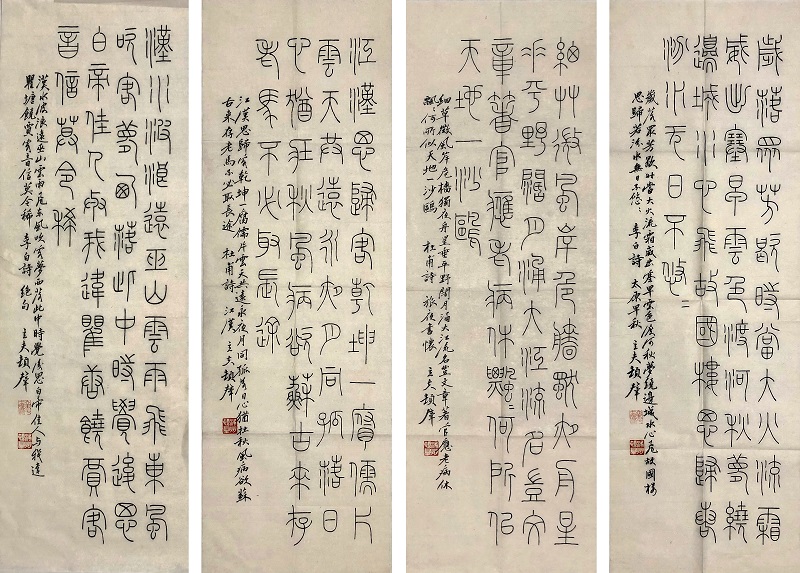 歲落眾芳歇時當大火流霜
威出塞早雲色渡河秋夢繞
邊城月心飛故國樓思歸
汾水无日不悠〻
歲落眾芳歇時當大火流霜威出塞早雲色渡河秋夢繞邊城月心飛故國樓
思歸若汾水無日不悠〻 李白詩 太原早秋
細艸微風岸危檣獨夜舟星
垂平野闊月涌大江流名豈文
章著官應老病休飄〻何所似
天地一沙鷗
細草微風岸危檣獨夜舟星垂平野闊月涌大江流名豈文章著官應老病休
飄〻何所似天地一沙鷗 杜甫詩 旅夜書懷
江漢思歸客乾坤一腐儒片
雲天共遠永夜月同孤落日
心猶壯秋風病欲蘇古來存
老馬不必取長途
江漢思歸客乾坤一腐儒片雲天共遠永夜月同孤落日心猶壯秋風病欲蘇
古來存老馬不必取長途 杜甫詩 江漢
漢水波浪遠巫山雲雨飛東風
吹客夢西落此中時覺後思
白帝佳人與我違瞿唐饒賈客
音信莫令稀
漢水波浪遠巫山雲雨飛東風吹客夢西落此中時覺後思白帝佳人與我違
瞿塘饒賈客音信莫令稀 李白詩 絕句